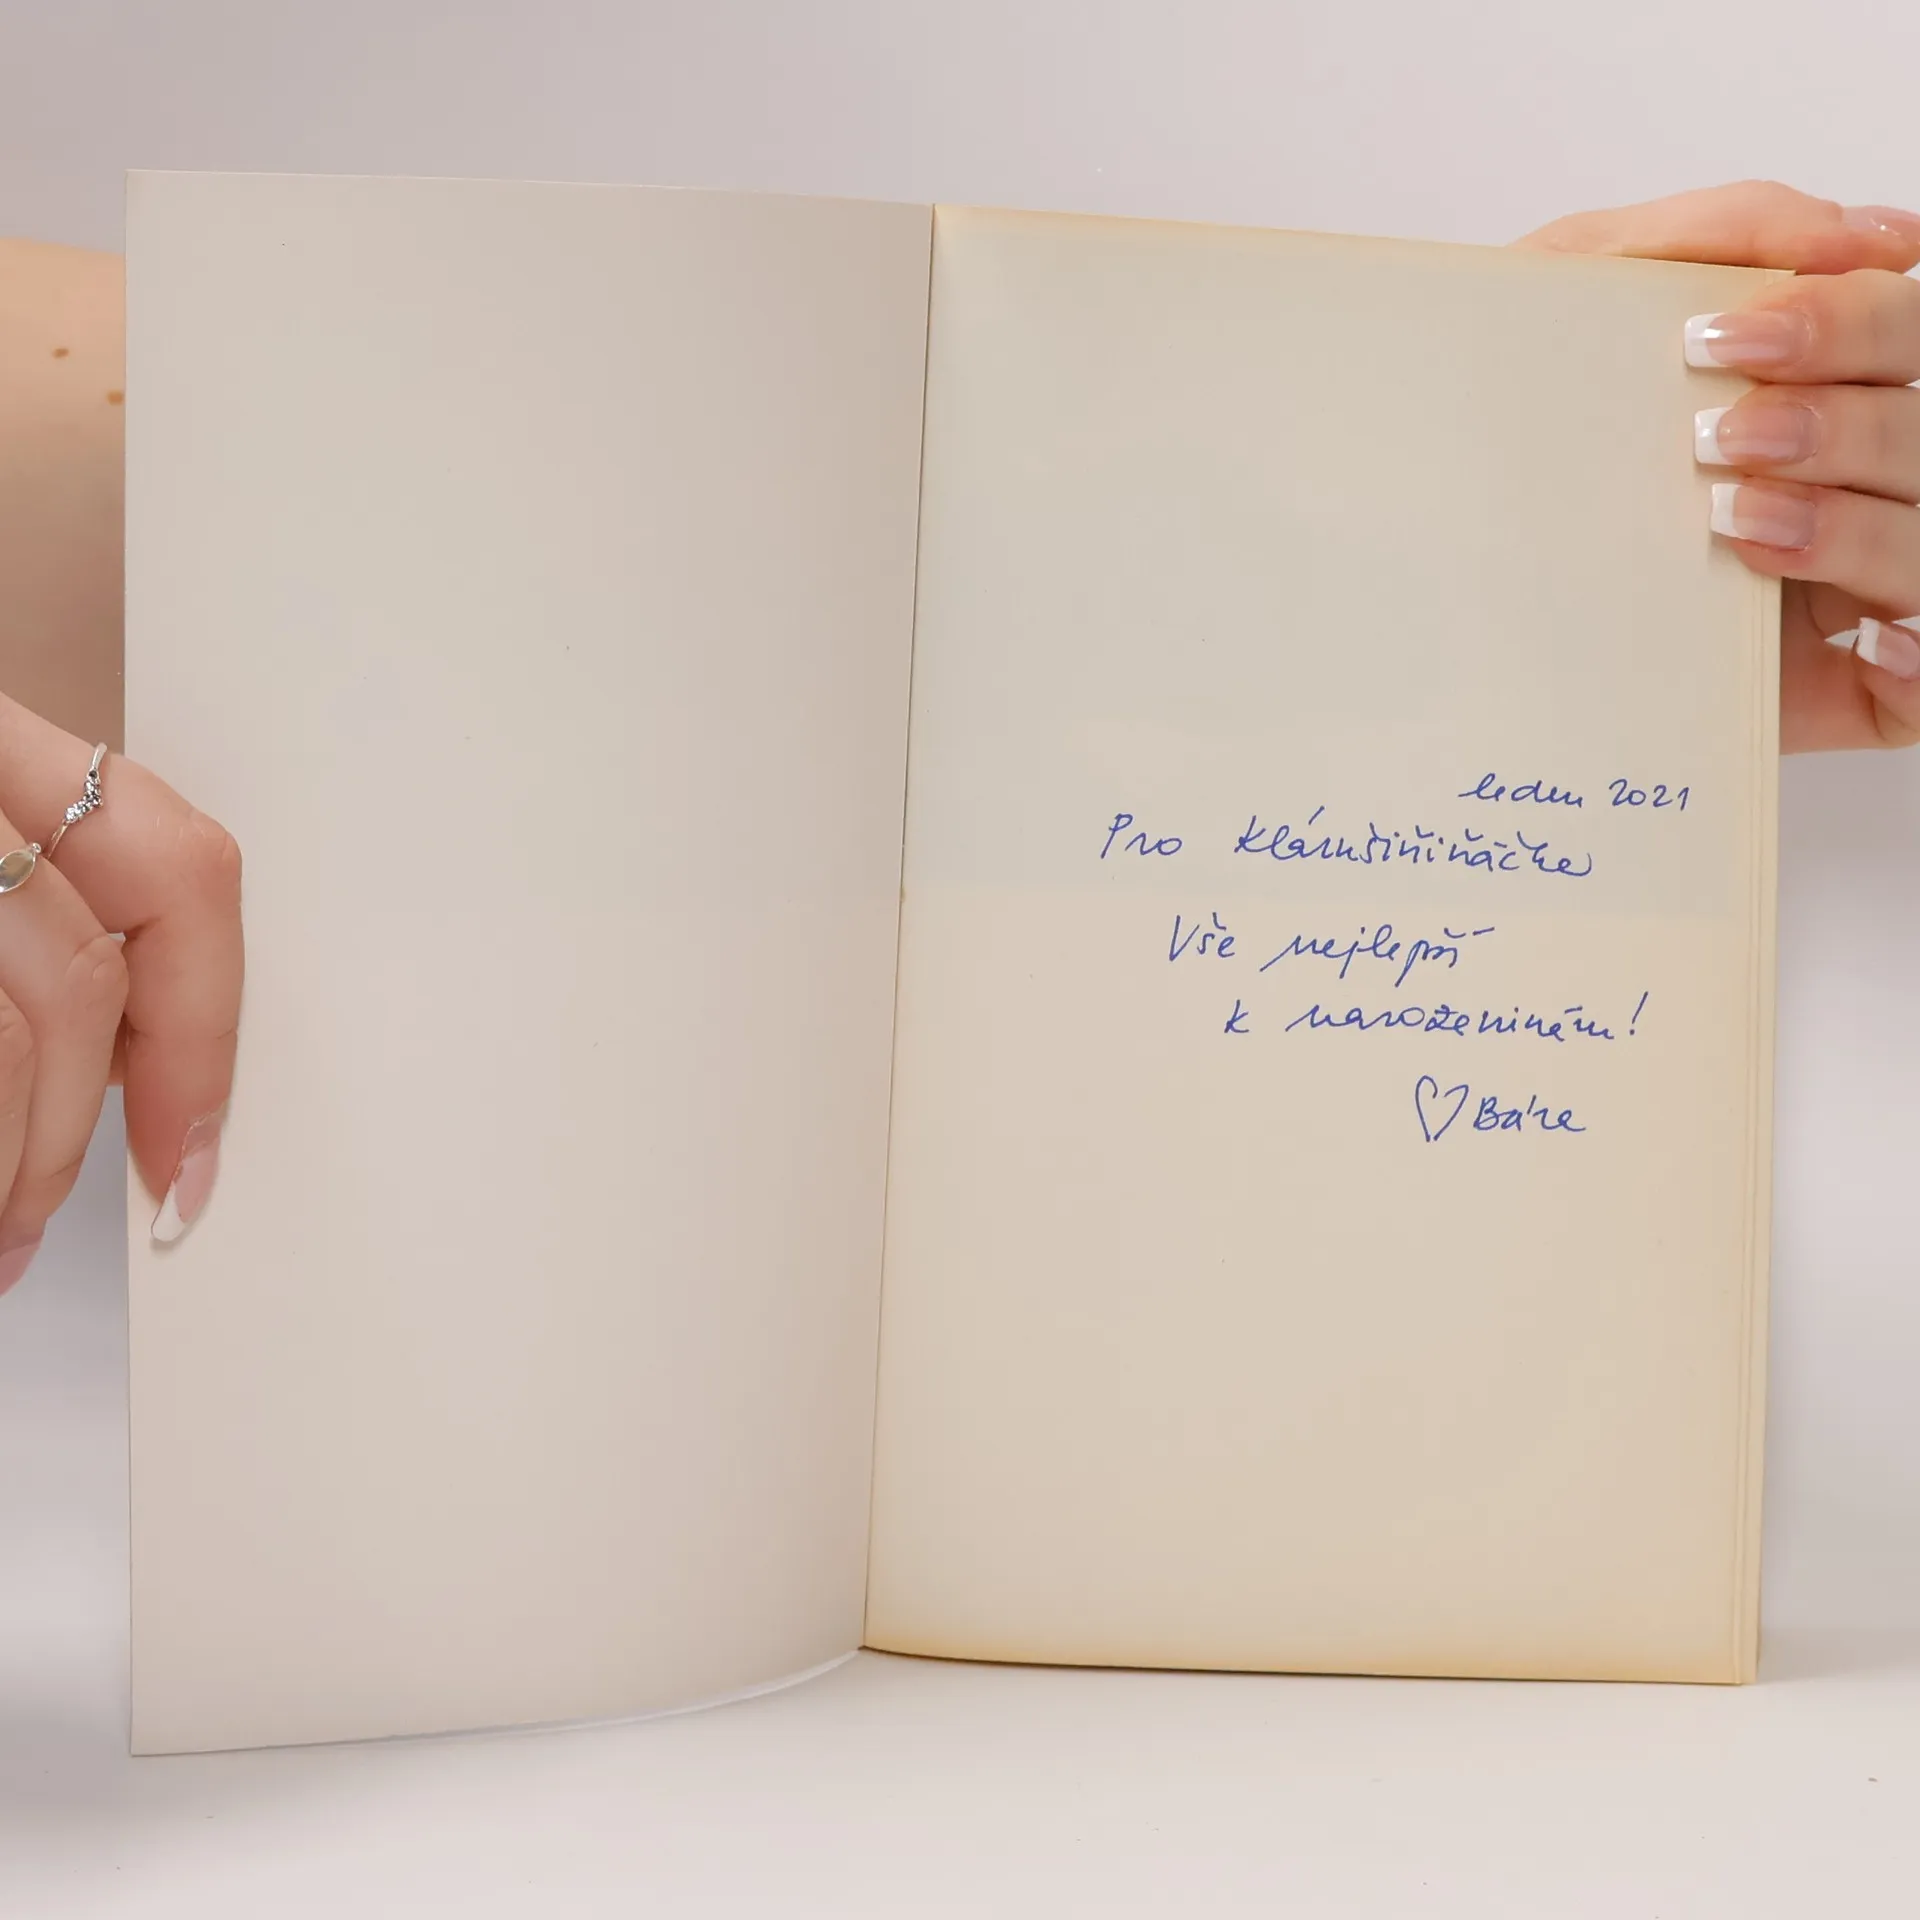 leden 2021
Pro Klárušiňiňáčke
Vše nejlepší
k narozeninám!
♡ Bára